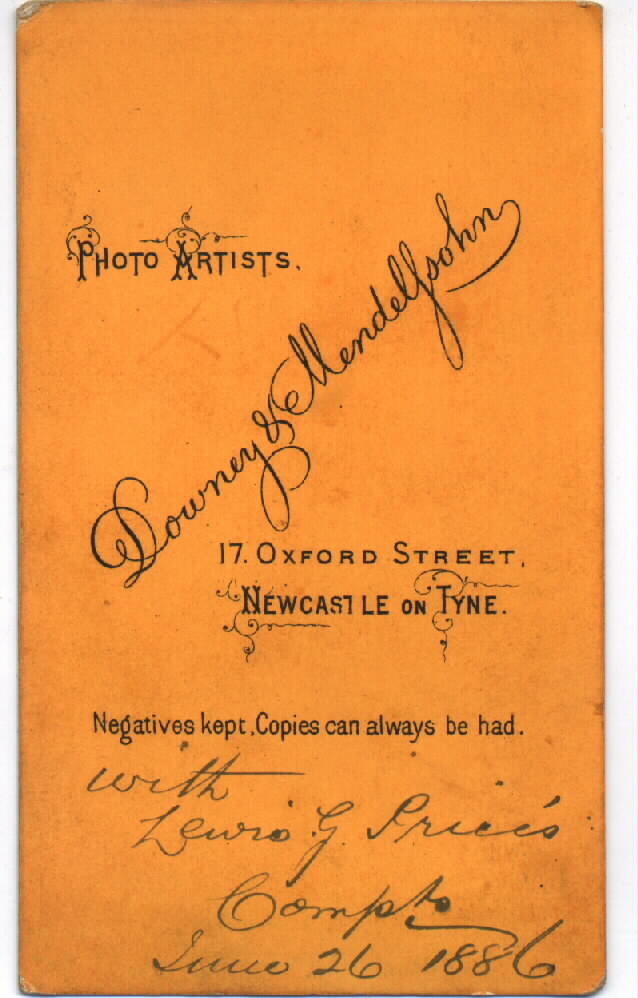 PHOTO ARTISTS.
Downey & Mendelssohn
17. OXFORD STREET,
NEWCASTLE ON TYNE.
Negatives kept, Copies can always be had.
with
Lewis G. Price's
Compts
June 26 1886